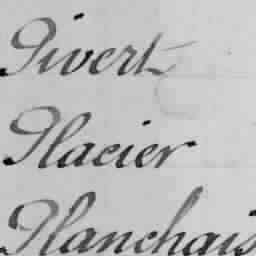 Pivert
Placier
Planchais